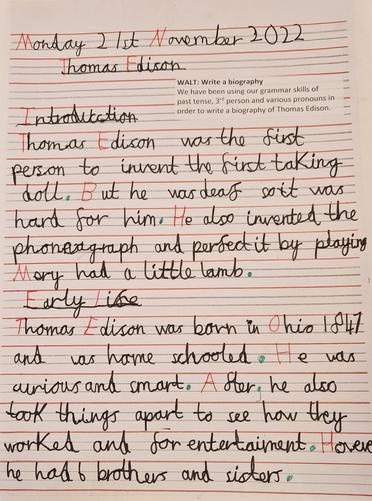 Monday 21st November 2022
Thomas Edison
WALT: Write a biography
We have been using our grammar skills of
past tense, 3rd person and various pronouns in
order to write a biography of Thomas Edison.
Introduction
Thomas Edison was the first
person to invent the first taking
doll. But he was deaf so it was
hard for him. He also invented the
phonoagraph and perfect it by playing
Mary had a little lamb.
Early Life
Thomas Edison was born in Ohio 1847
and was home schooled. He was
curious and smart. After, he also
took things apart to see how they
worked and for entertaiment. However
he had 6 brothers and sisters.